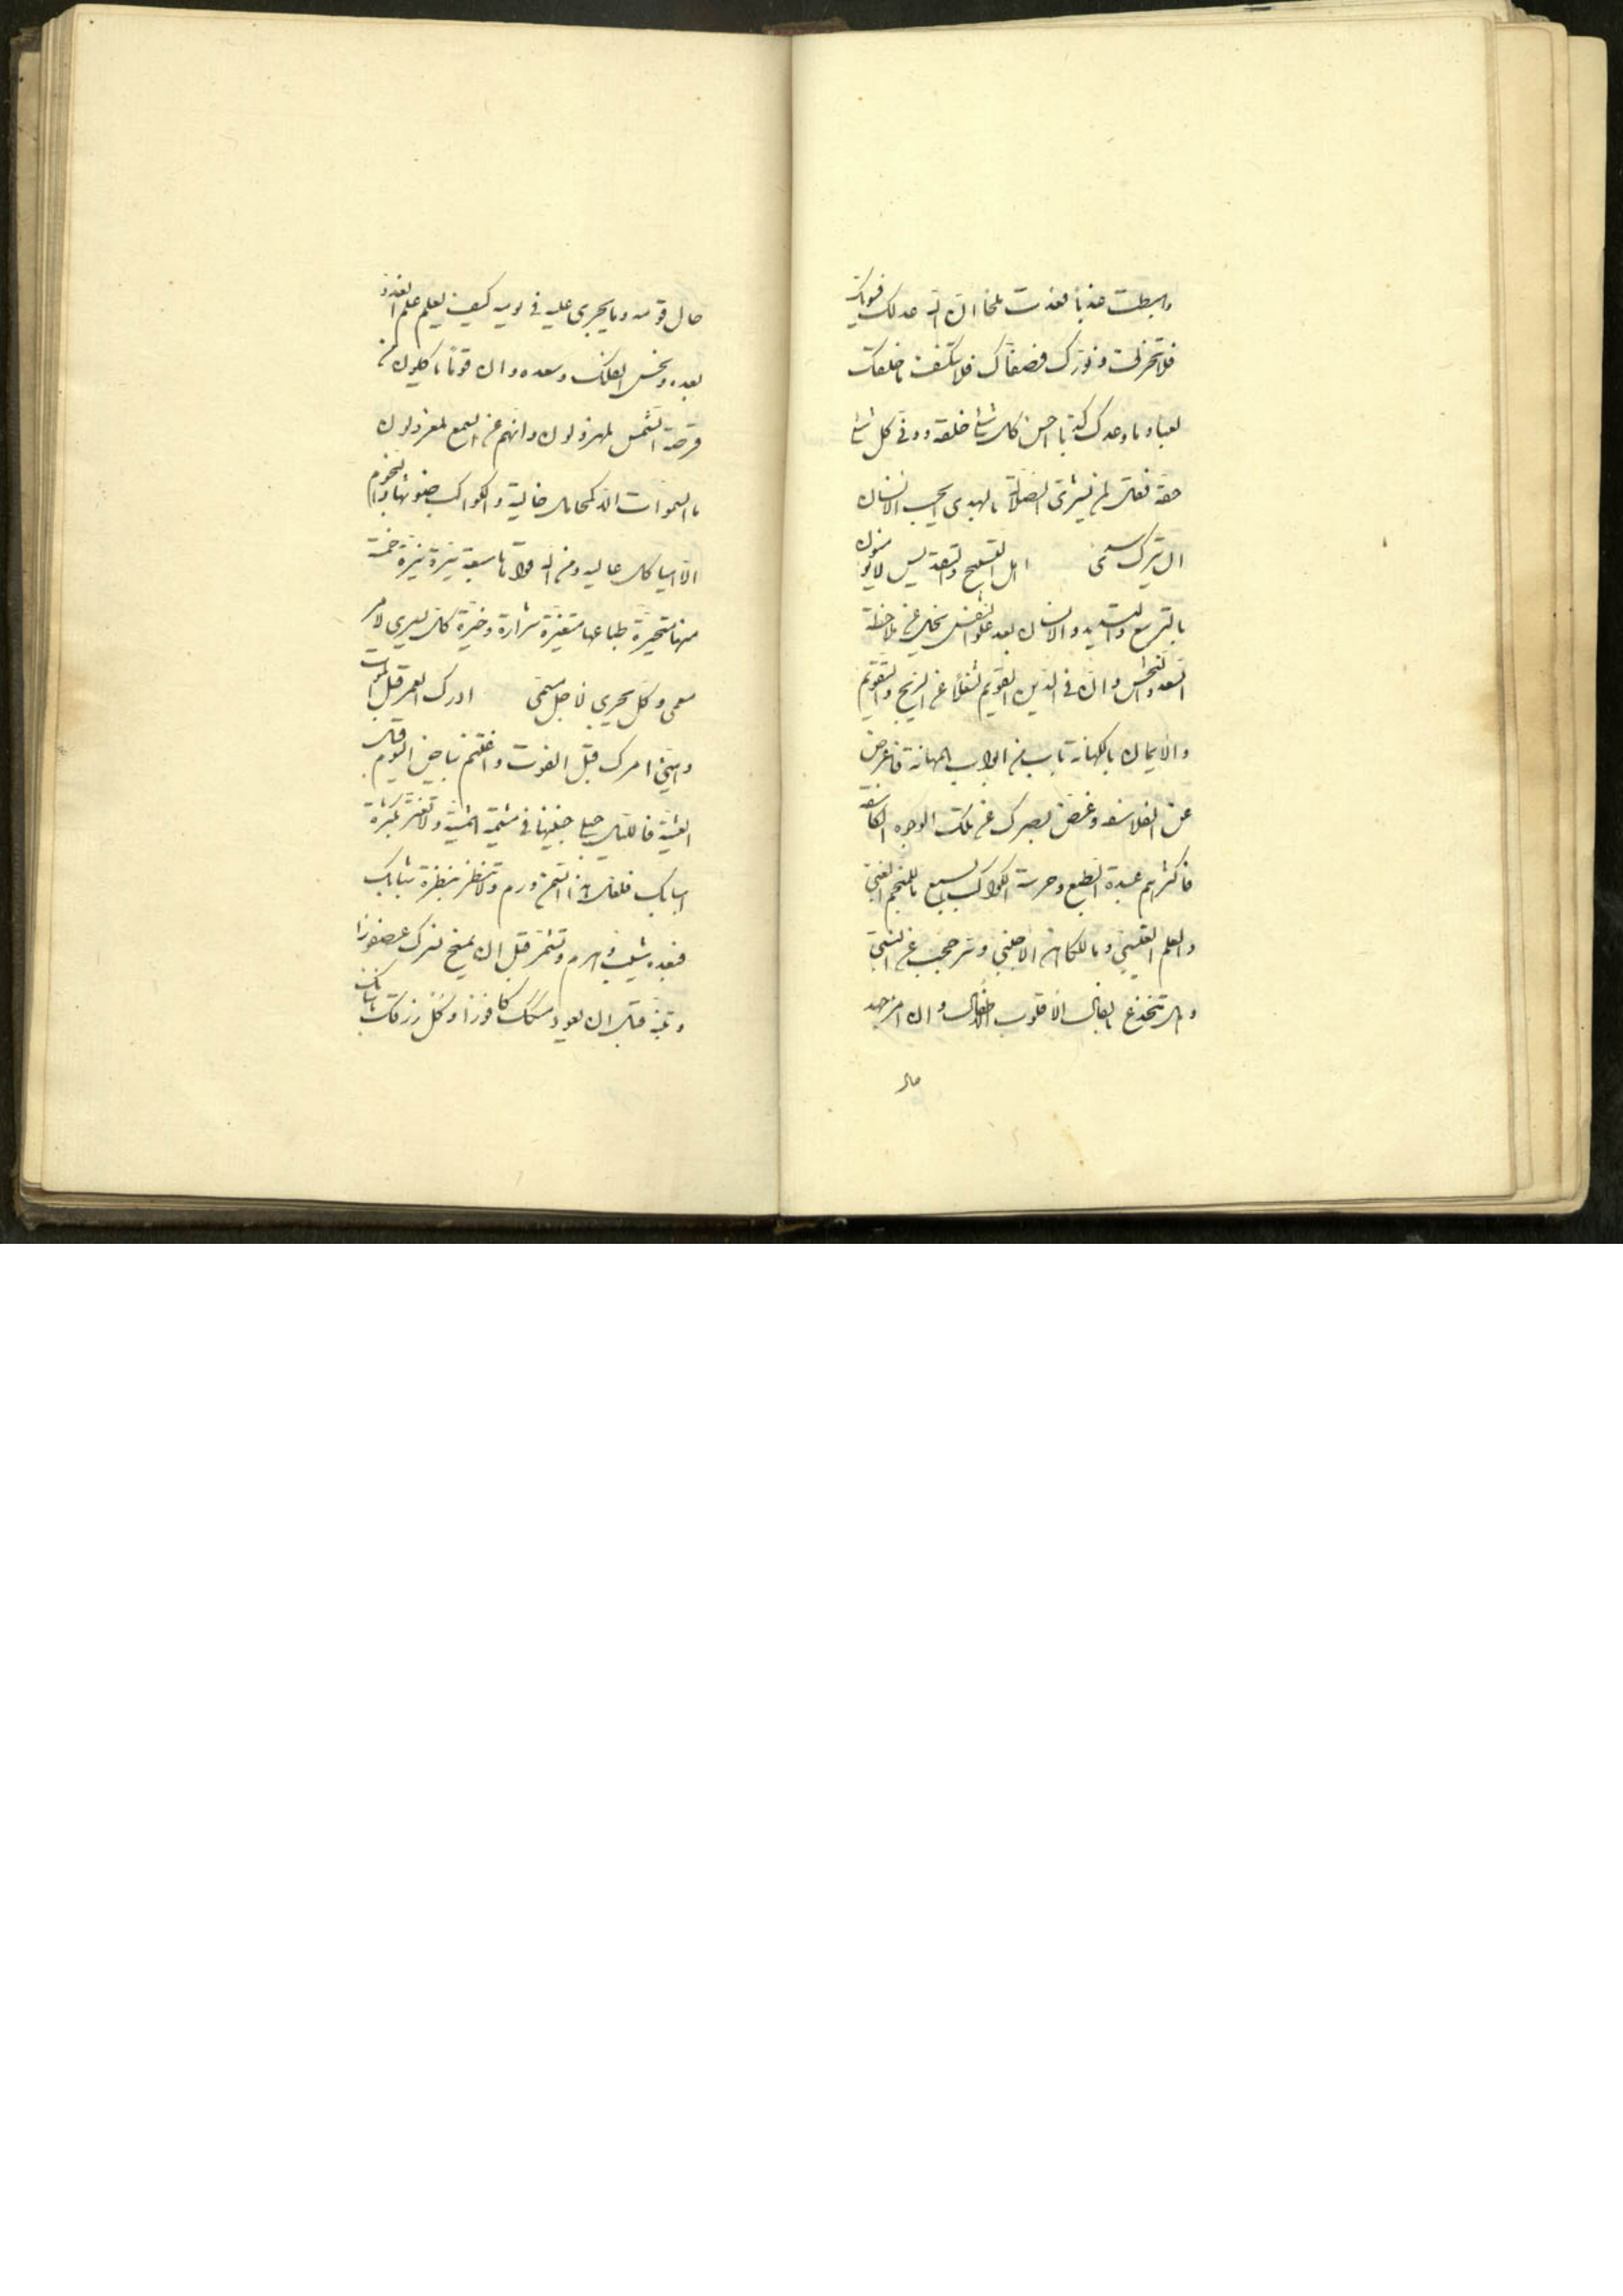 واهبطت عذبا فعدت ملحا ان الله عدلك فسواك
فلا تحرفك ونورك فصفاك فلا تكسف ما خلقك
لعبا وما وجدك كذبا احسن كل شئ خلقه ووفى كل شئ
حقه فقل لمن يشترى الضلالة بالهدى ايحسب الانسان
ان يترك سدى اهل التسبيح والتقديس لا يؤمنون
بالتربيع والتسديس والانسان بعد علو النفس يجل عن ملاحظة
السعد والنحس وان فى الدين القويم لشغلا عن الزيج والتقويم
والايمان بالكهانة باب من ابواب المهانة فاعرض
عن الفلاسفة وغض بصرك عن تلك الوجوه الكاسفة
فاكثرهم عبدة الطبع وحرسة الكواكب السبع ما للمنجم الغبى
والعلم الغيبى وما للكاهن الاجنبى وسر حجب عن النبى
وهل ينخدع بالفال الا قلوب الاطفال وان امرأ جهد
حال
حال قومه وما يجرى عليه فى يومه كيف يعلم علم الغد و
بعده ونحس الفلك وسعده وان قوما ياكلون من
قرصة الشمس لمهزولون وانهم عن السمع لمعزولون
ما السموات الا مجاهل خالية والكواكب صنوها والنجوم
الا هياكل عالية ومن الله قواها سبعة سيرة نيرة خمسة
منها متحيرة طباعها متغيرة شرارة وخيرة كل يسرى لامر
معمى وكل يجرى لاجل مسمى ادرك العمر قبل الموت
وهيئ امرك قبل الفوت واغتنم بياض اليوم قبل
العشية فالليل حبلى جنينها فى مشيمة المشية ولا تغتر بكثرة
اسبابك فلعل هذا السمن ورم ولا تنظر بنظرة شبابك
فبعده شيب وهرم وتشمر قبل ان يمسخ نسرك عصفورا
وتنبه قبل ان يعود مسكك كافورا وكل رزقك مادامت